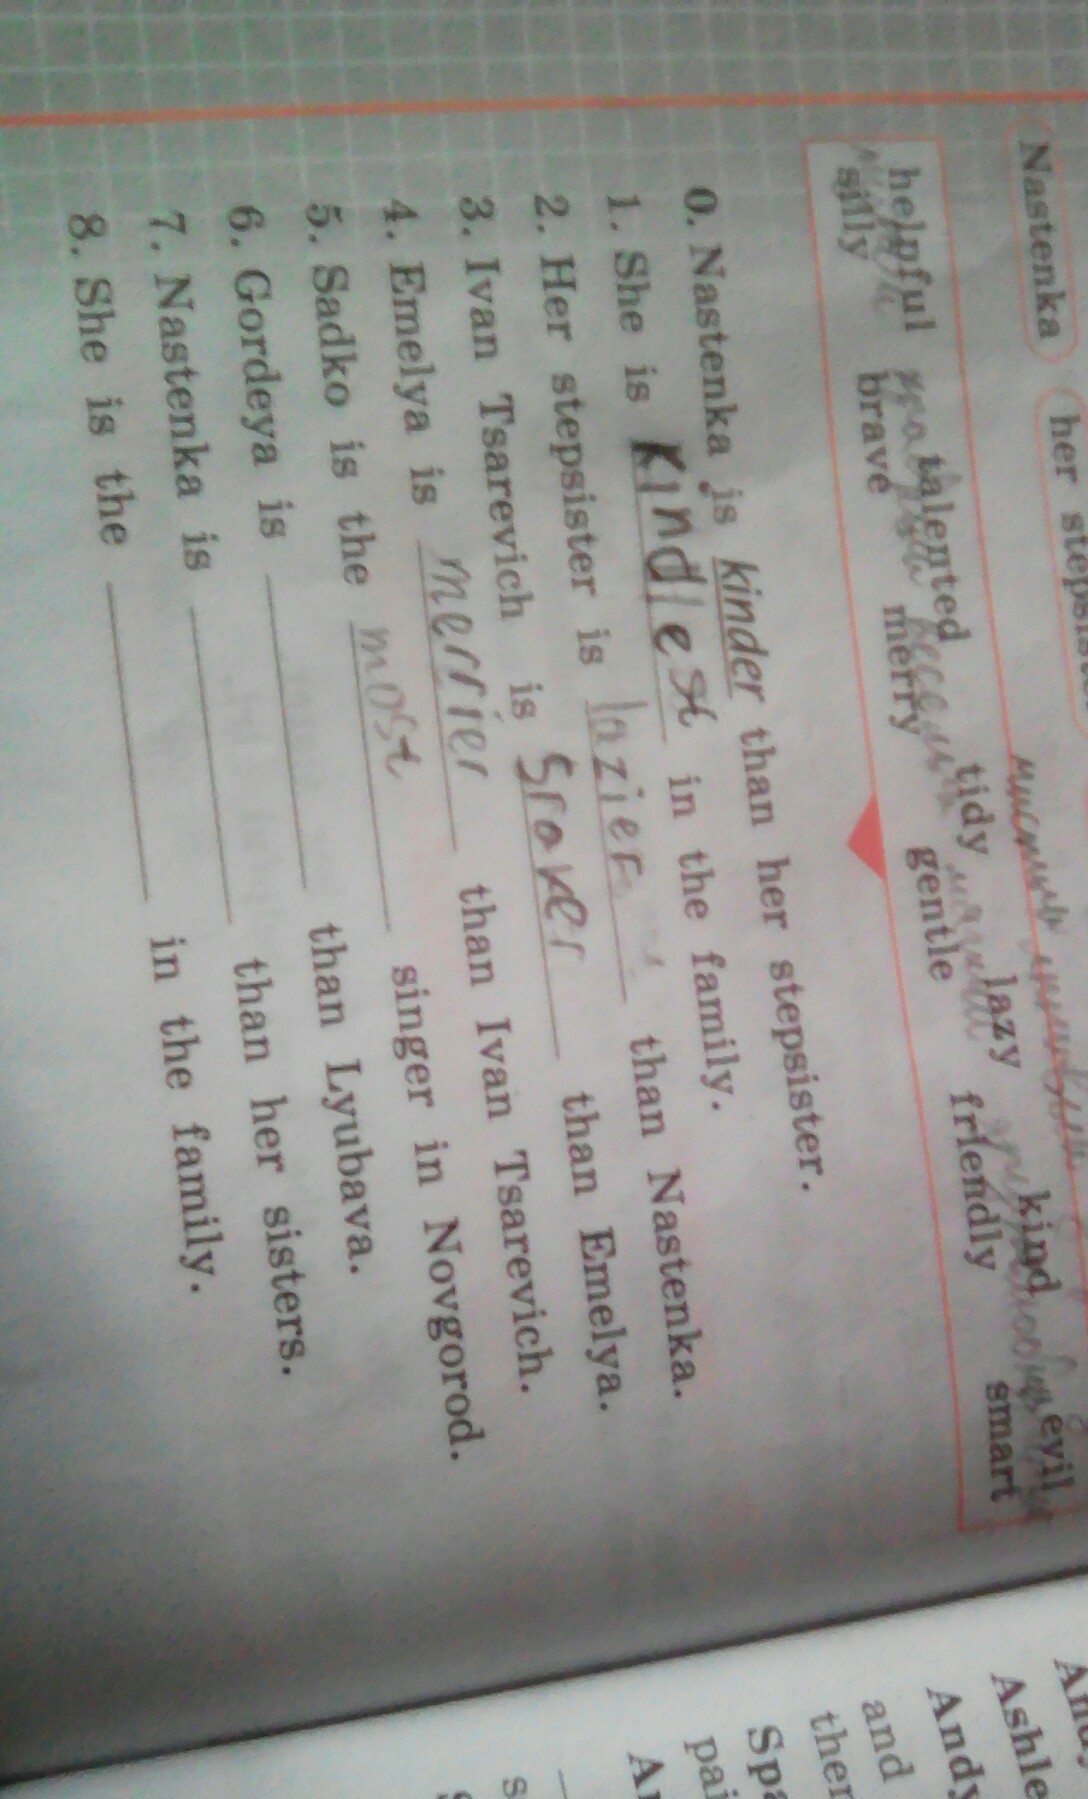 Nastenka her
kind evil
tidy lazy smart
helpful talented gentle friendly
silly brave merry
0. Nastenka is kinder than her stepsister.
1. She is Kindlest in the family.
2. Her stepsister is lazier than Nastenka.
3. Ivan Tsarevich is Sraver than Emelya.
4. Emelya is merrier than Ivan Tsarevich.
5. Sadko is the most singer in Novgorod.
6. Gordeya is than Lyubava.
7. Nastenka is than her sisters.
8. She is the in the family.
Ashle
Andy
and
ther
Spa
pai